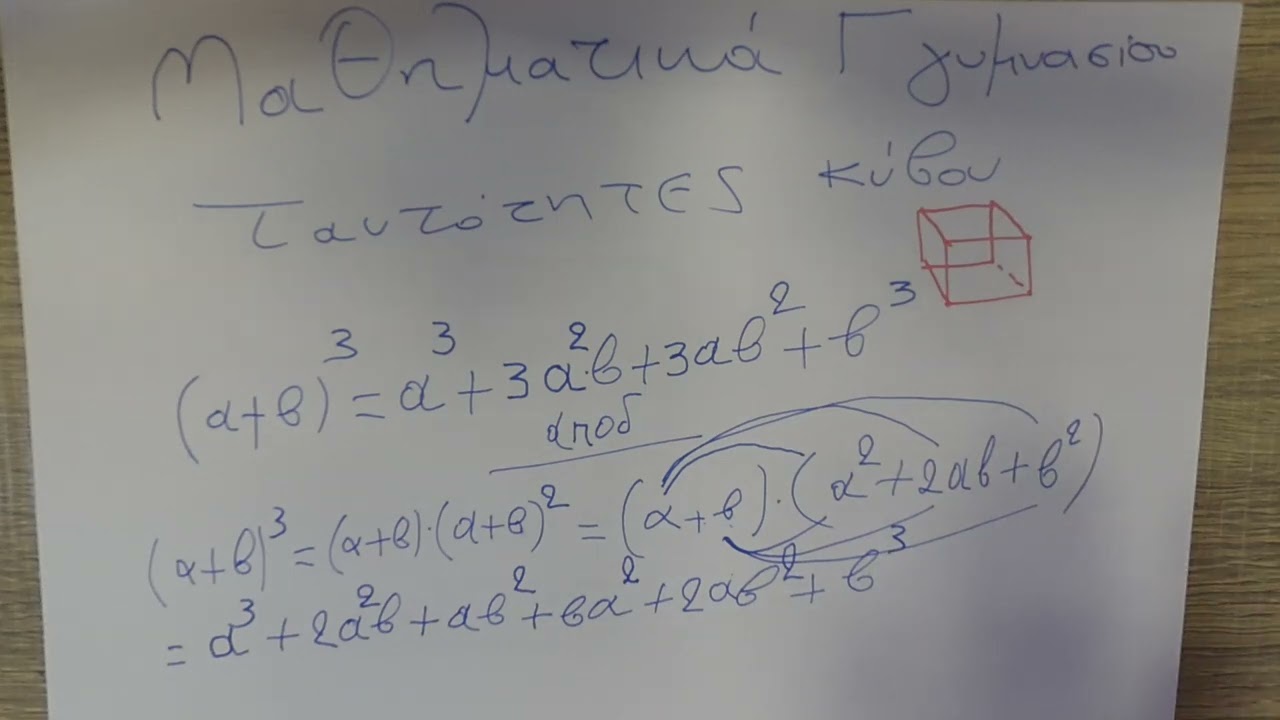 Μαθηματικά Γ γυμνασίου
Ταυτότητες κύβου
(α+β)³ = α³ + 3α²β + 3αβ² + β³
αποδ
(α+β)³ = (α+β)·(α+β)² = (α+β)·(α²+2αβ+β²)
= α³ + 2α²β + αβ² + βα² + 2αβ² + β³